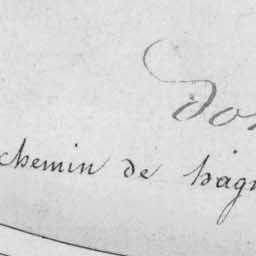 Don
chemin de bagn